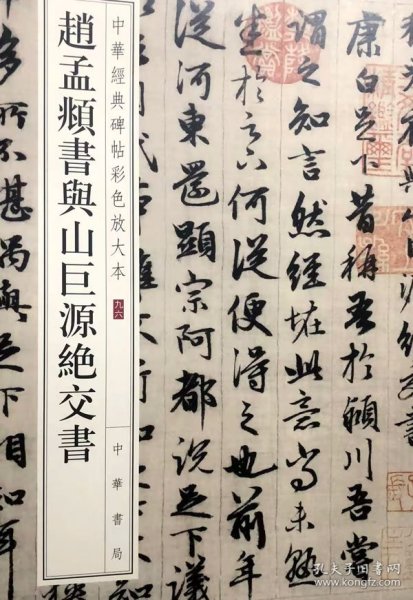 趙孟頫書與山巨源絶交書
中華經典碑帖彩色放大本
九六
中華書局
康白足下昔稱吾於潁川吾嘗
謂之知言然經恠此意尚未熟
悉於足下何從便得之也前年
從河東還顯宗阿都說足下議
多所不堪偶與足下相知
孔夫子旧书网
www.kongfz.com